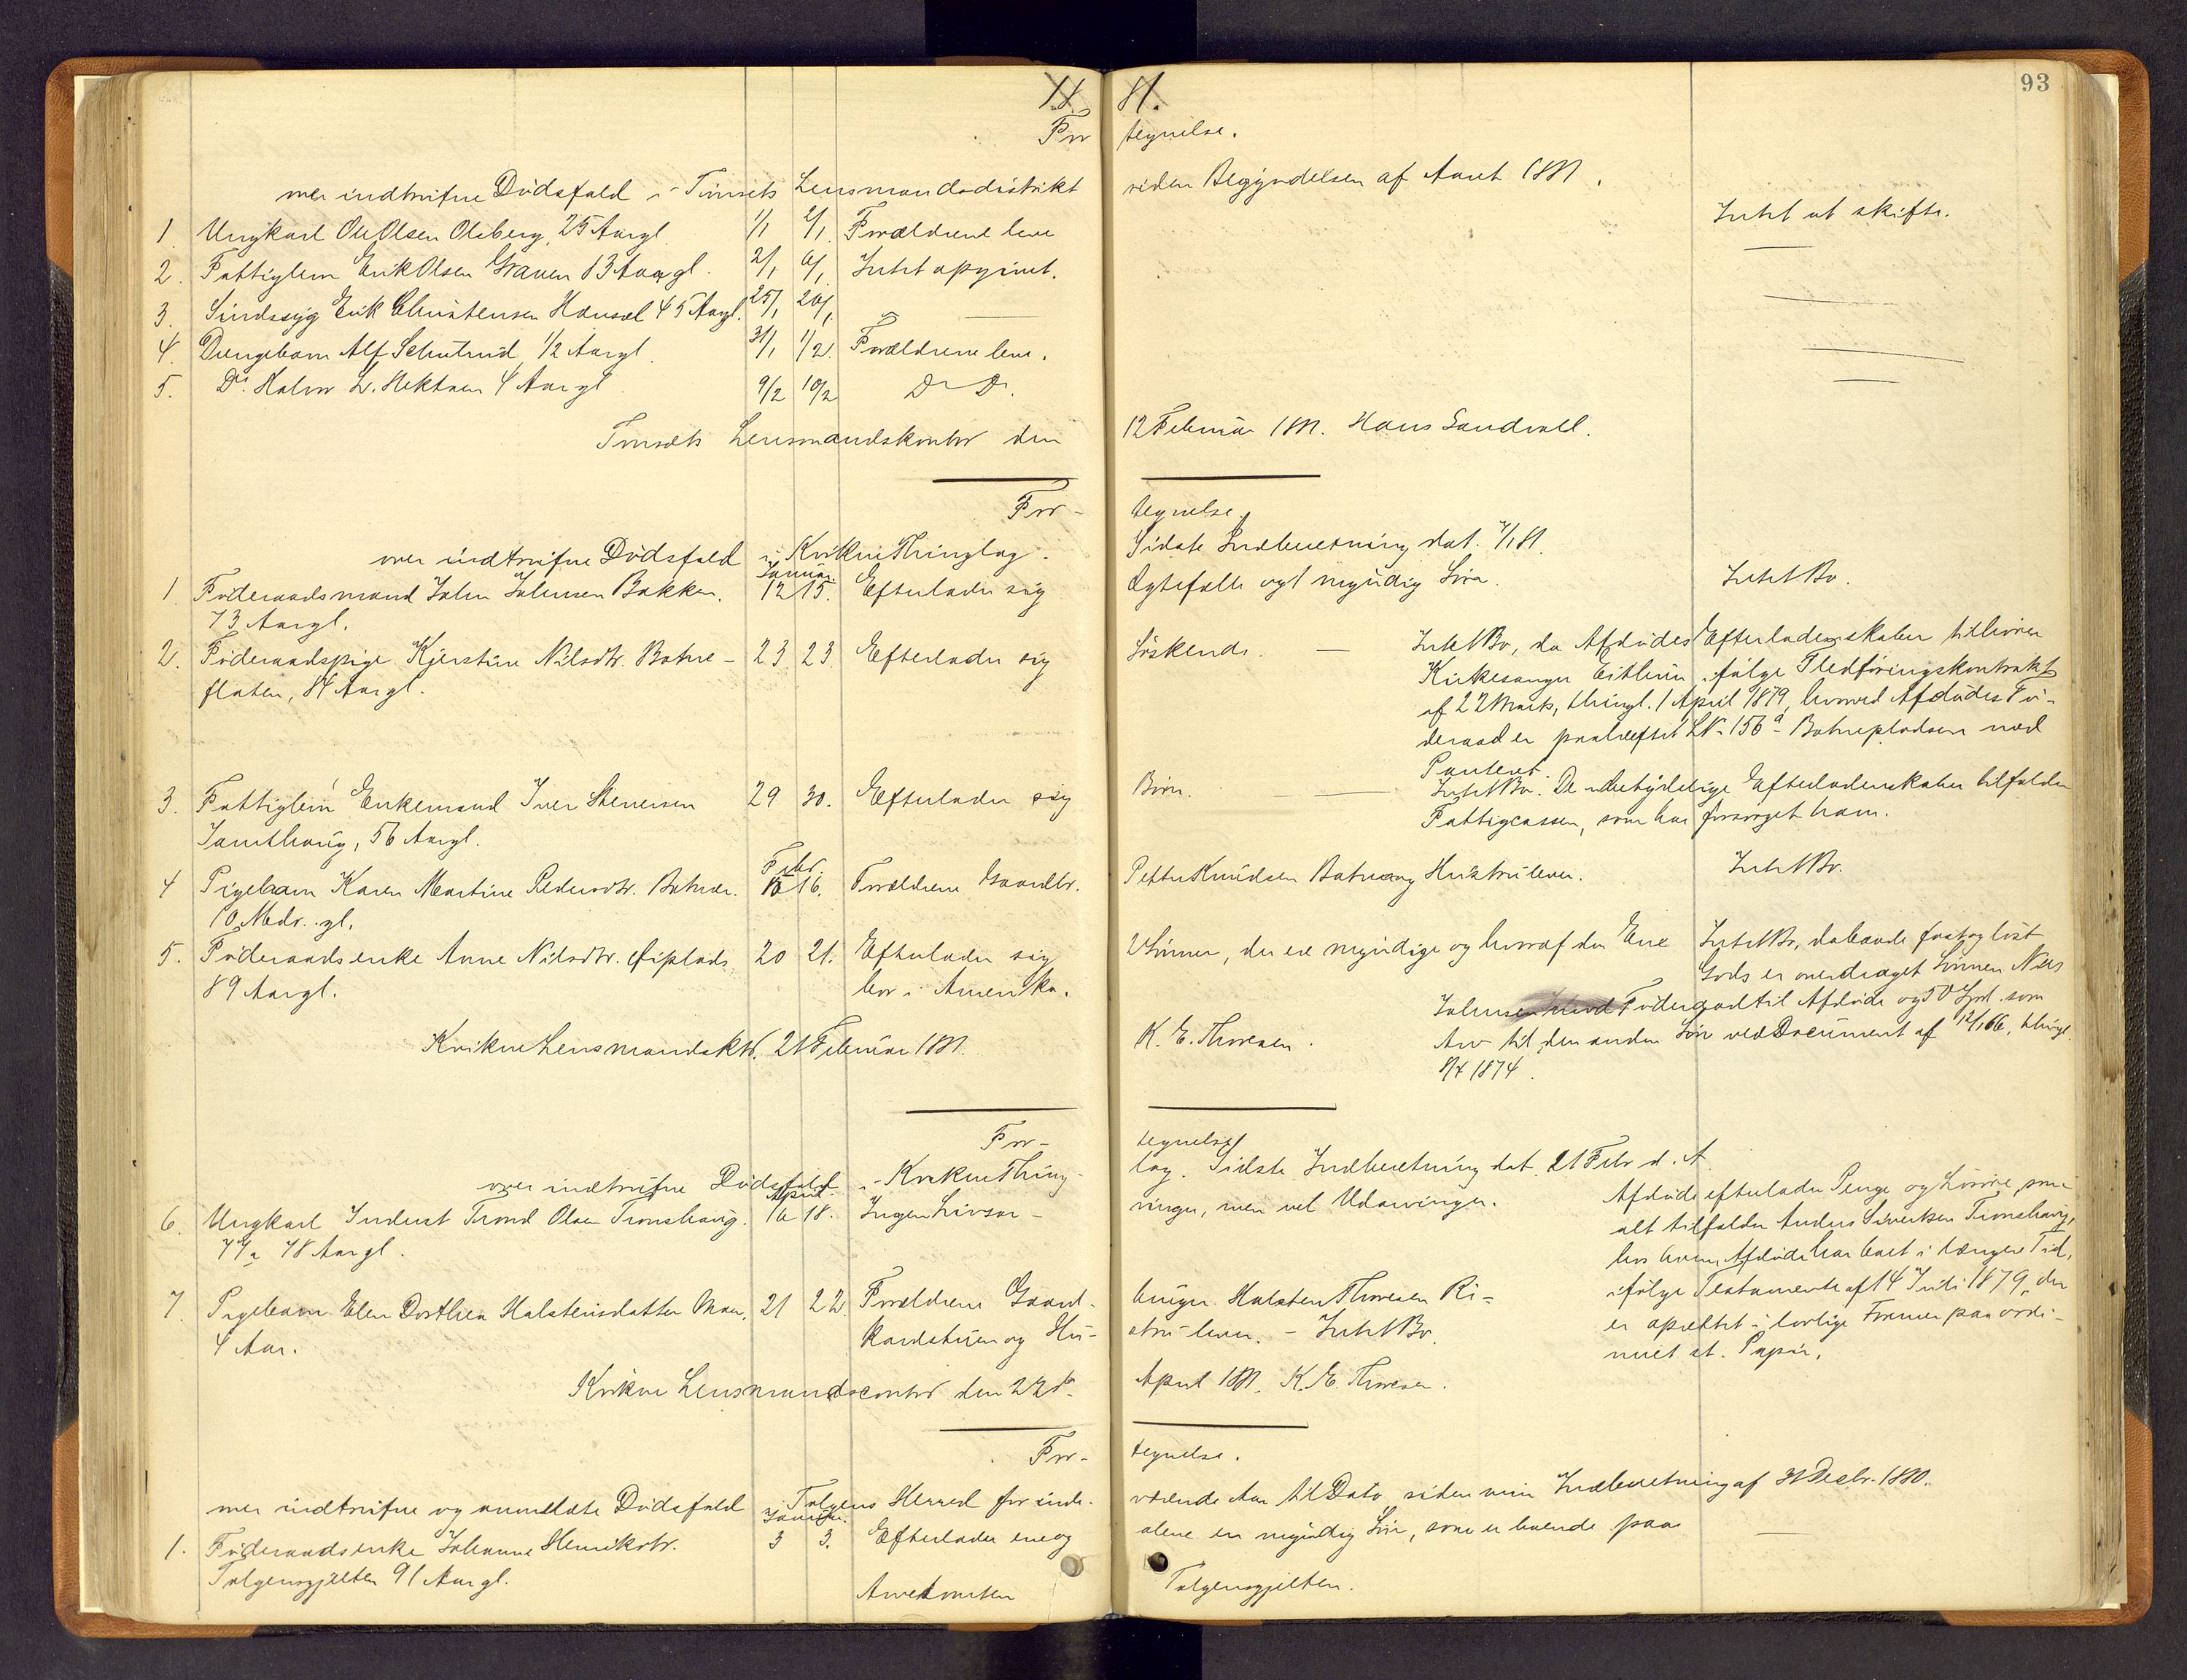 93
18 81.
For tegnelse.
over indtrufne Dødsfald i Tønsets Lensmandsdistrikt siden Begyndelsen af Aaret 1881.
1. Ungkarl Ole Olsen Olsberg, 25 Aar gl. 1/1 2/1 Forældrene leve Intet at skifte.
2. Fattiglem Erik Olsen Grauen 83 Aar gl. 2/1 6/1 Intet opgivet. —
3. Sindssyg Erik Christensen Hansæl 45 Aar gl. 25/1 26/1 — —
4. Drengebarn Alf Schulrud 1/2 Aar gl. 31/1 1/2 Forældrene leve. —
5. Do. Halvor L. Hektoen 4 Aar gl 9/2 10/2 Do Do. —
Tønsæts Lensmandskontor den 12 Februar 1881. Hans Sandvold.
For- tegnelse.
over indtrufne Dødsfald i Kvikne Thinglag. Sidste Indberetning dat. 7/1 81.
Januar.
1. Föderaadsmand John Johnsen Bakken. 12 15. Efterlader sig Egtefælle og 1 myndig Søn. Intet Bo.
73 Aar gl.
2. Föderaadspige Kjerstine Nilsdtr. Botne- 23 23 Efterlader sig Söskende. — Intet Bo, da Afdødes Efterladenskaber tilhører
flaten, 84 Aar gl. Kirkesanger Eithun, ifølge Fledføringskontrakt
af 22 Marts, thingl. 1 April 1879, hvorved Afdødes Fö-
deraad er paaheftet LN. 156a Botnepladsen med
Panteret.
3. Fattiglem Enkemand Iver Stenersen 29 30. Efterlader sig Börn. — Intet Bo. De ubetydelige Efterladenskaber tilfalder
Jamthaug, 56 Aar gl. Fattigcassen, som har forsørget ham.
Febr.
4 Pigebarn Karen Martine Pedersdtr. Botnen. 15 16. Forældrene Gaardbr. Petter Knudsen Botnen og Hustru lever. Intet Bo.
10 Mdr. gl.
5. Föderaadsenke Anne Nilsdtr. Øiplads 20 21. Efterlader sig 2 Sønner, der ere myndige og hvoraf den Ene Intet Bo, da baade fast og löst
89 Aar gl. bor i Amerika. Gods er overdraget Sønnen Niels
Johnsen mod Föderaad til Afdøde og 50 Spd. som
Arv til den anden Søn ved Document af 12/1 66, thingl.
1874.
Kvikne Lensmandsktr. 21 Februar 1881. K. E. Thoresen.
For- tegnelse
over indtrufne Dødsfald i Kvikne Thing- lag. Sidste Indberetning dat. 21 Febr d. A.
April.
6. Ungkarl Inderst Trond Olsen Tronshaug. 16 18. Ingen Livsar- vinger, men vel Udarvinger. Afdøde efterlader Penge og Løsøre, som
77 a 78 Aar gl. alt tilfalder Anders Sivertsen Tronshaug,
hos hvem Afdøde har boet i længere Tid,
ifølge Testamente af 14 Juli 1879, der
er oprettet i lovlige Former paa ordi-
nært st. Papir.
7. Pigebarn Elen Dorthea Halstensdatter Moen, 21 22. Forældrene Gaard- bruger Halsten Thoresen Ri-
4 Aar. kardstuen og Hu- stru lever. – Intet Bo.
Kvikne Lensmandscontor den 22de April 1881. K. E. Thoresen.
For- tegnelse.
over indtrufne og anmeldte Dødsfald i Tolgens Herred for inde- værende Aar til Dato siden min Indberetning af 31 Decbr. 1880.
Januar.
1. Föderaadsenke Johanne Henriksdtr. 3 3. Efterlader eneog alene en myndig Søn, som er boende paa —
Tolgensgjelten 91 Aar gl. Arvetomten Tolgensgjelten.